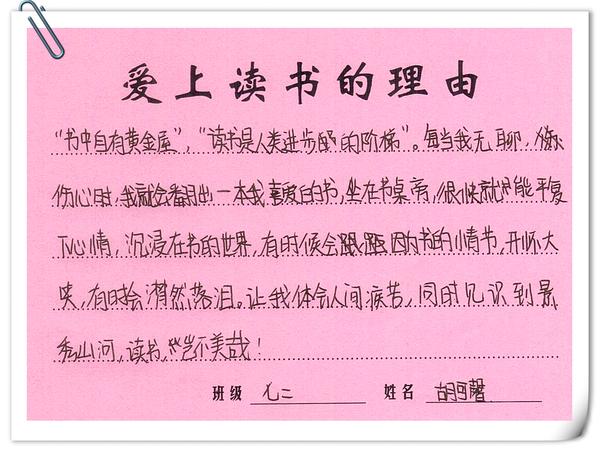 爱上读书的理由
“书中自有黄金屋”，“读书是人类进步的阶梯”。每当我无聊，
伤心时，我就会翻出一本我喜爱的书，坐在书桌旁，很快就能平复
下心情，沉浸在书的世界，有时候会因为书的情节，开怀大
笑，有时会潸然落泪。让我体会人间疾苦，同时见识到景
秀山河，读书，岂不美哉！
班级 七二 姓名 胡馨